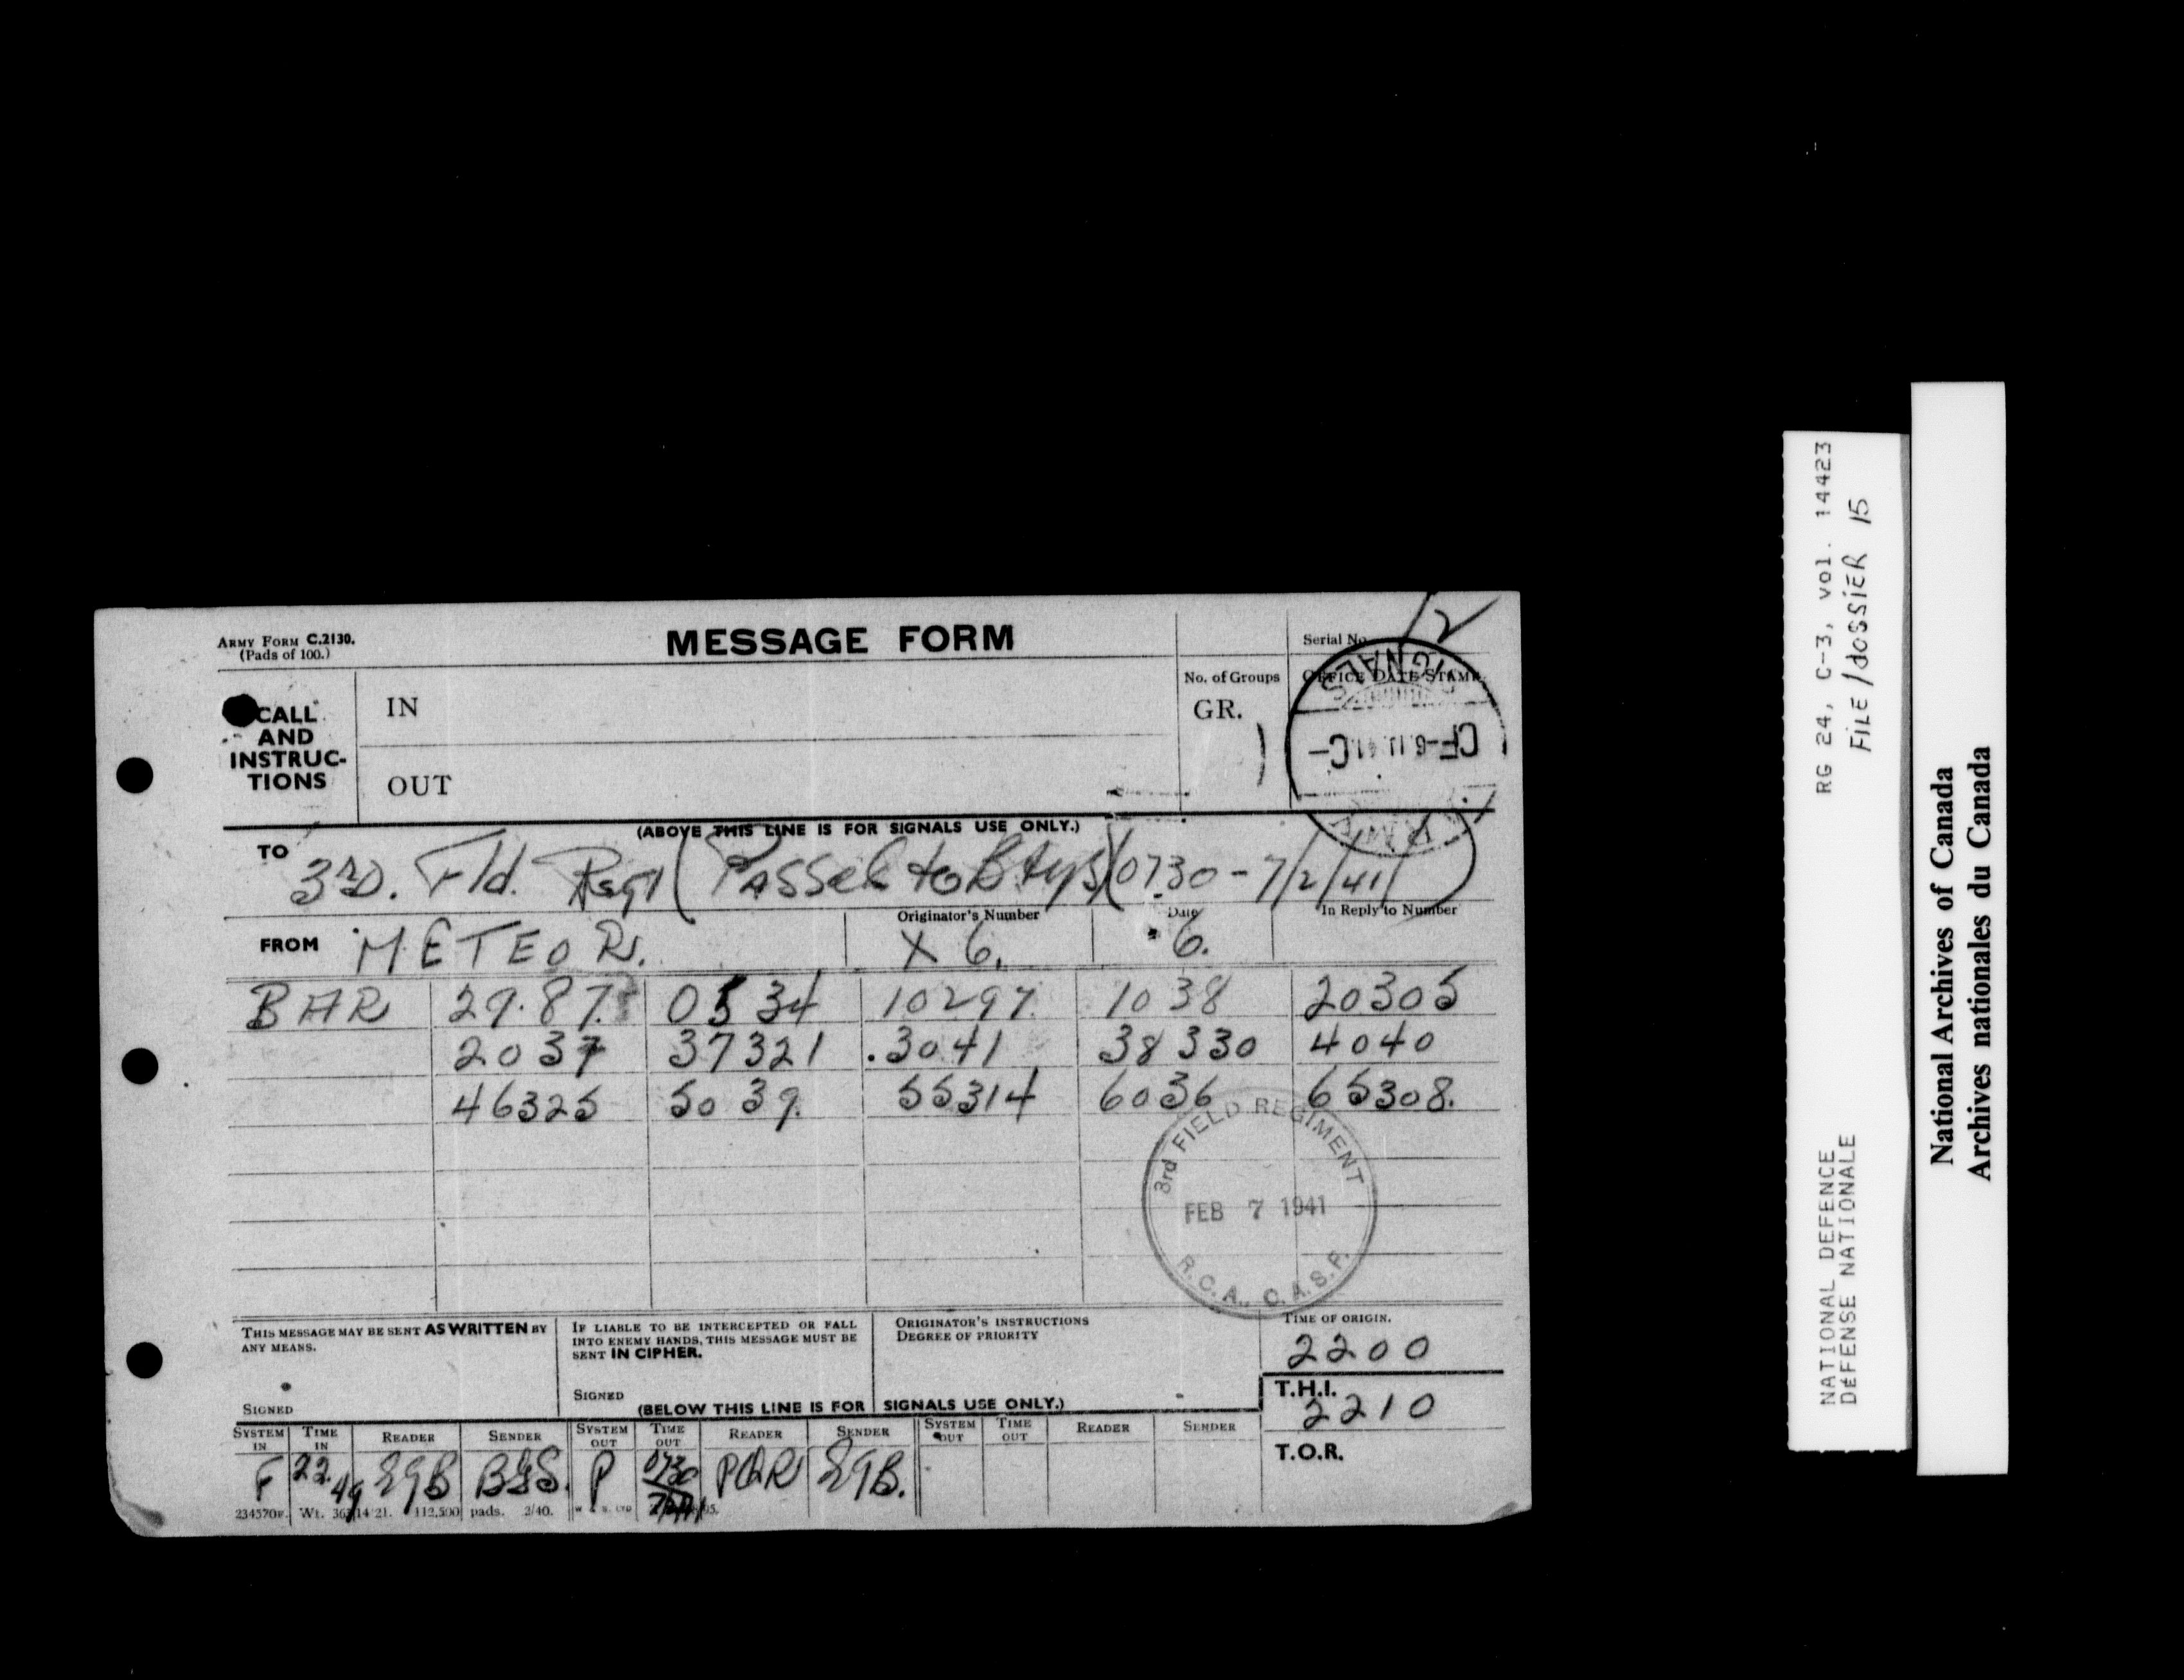 ARMY FORM C.2130.
(Pads of 100.)
MESSAGE FORM
Serial No. 12
CALL
AND
INSTRUC-
TIONS
IN
OUT
No. of Groups
GR.
OFFICE DATE STAMP
SIGNALS
(ABOVE THIS LINE IS FOR SIGNALS USE ONLY.)
TO 3RD. Fld. Regt (Passed to Btys) (0730 - 7/2/41)
FROM METEOR. Originator's Number X 6. Date 6. In Reply to Number
BAR 29.87. 0534 10297. 1038 20305
2037 37321 .3041 38330 4040
46325 5039. 55314 6036 65308.
3rd FIELD REGIMENT
FEB 7 1941
R.C.A., C.A.S.F.
THIS MESSAGE MAY BE SENT AS WRITTEN BY
ANY MEANS.
SIGNED
IF LIABLE TO BE INTERCEPTED OR FALL
INTO ENEMY HANDS, THIS MESSAGE MUST BE
SENT IN CIPHER.
SIGNED
ORIGINATOR'S INSTRUCTIONS
DEGREE OF PRIORITY
TIME OF ORIGIN.
2200
T.H.I.
2210
T.O.R.
(BELOW THIS LINE IS FOR SIGNALS USE ONLY.)
SYSTEM IN TIME IN READER SENDER SYSTEM OUT TIME OUT READER SENDER SYSTEM OUT TIME OUT READER SENDER
F 22.49 EGB P 0730 EGB.
234570F. 112,500 pads. 2/40.
RG 24, C-3, vol. 14423
FILE/DOSSIER 15
NATIONAL DEFENCE
DÉFENSE NATIONALE
National Archives of Canada
Archives nationales du Canada